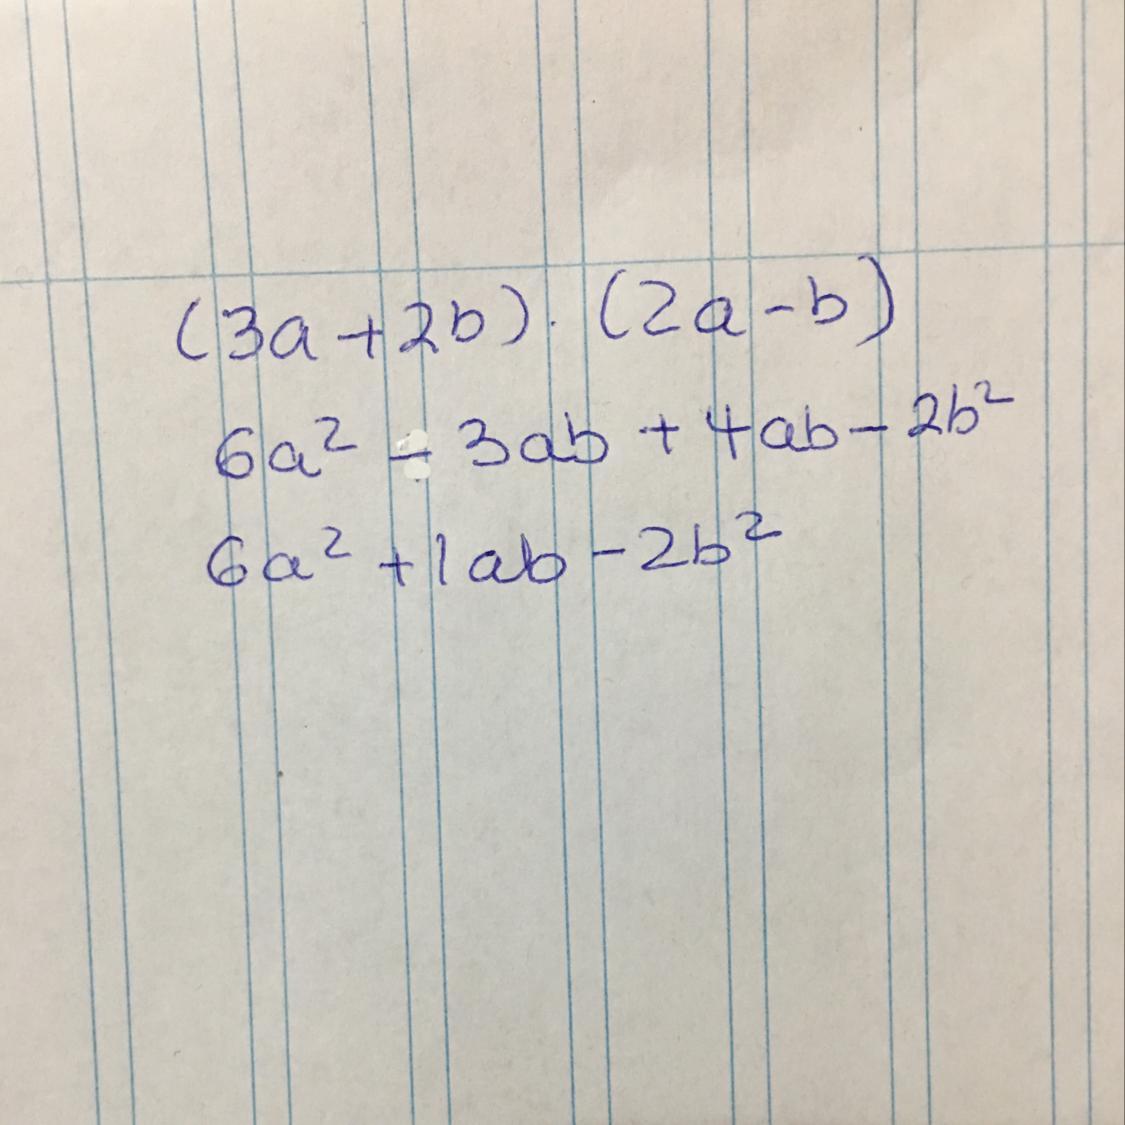 (3a+2b).(2a-b)
6a² - 3ab + 4ab - 2b²
6a² + 1ab - 2b²